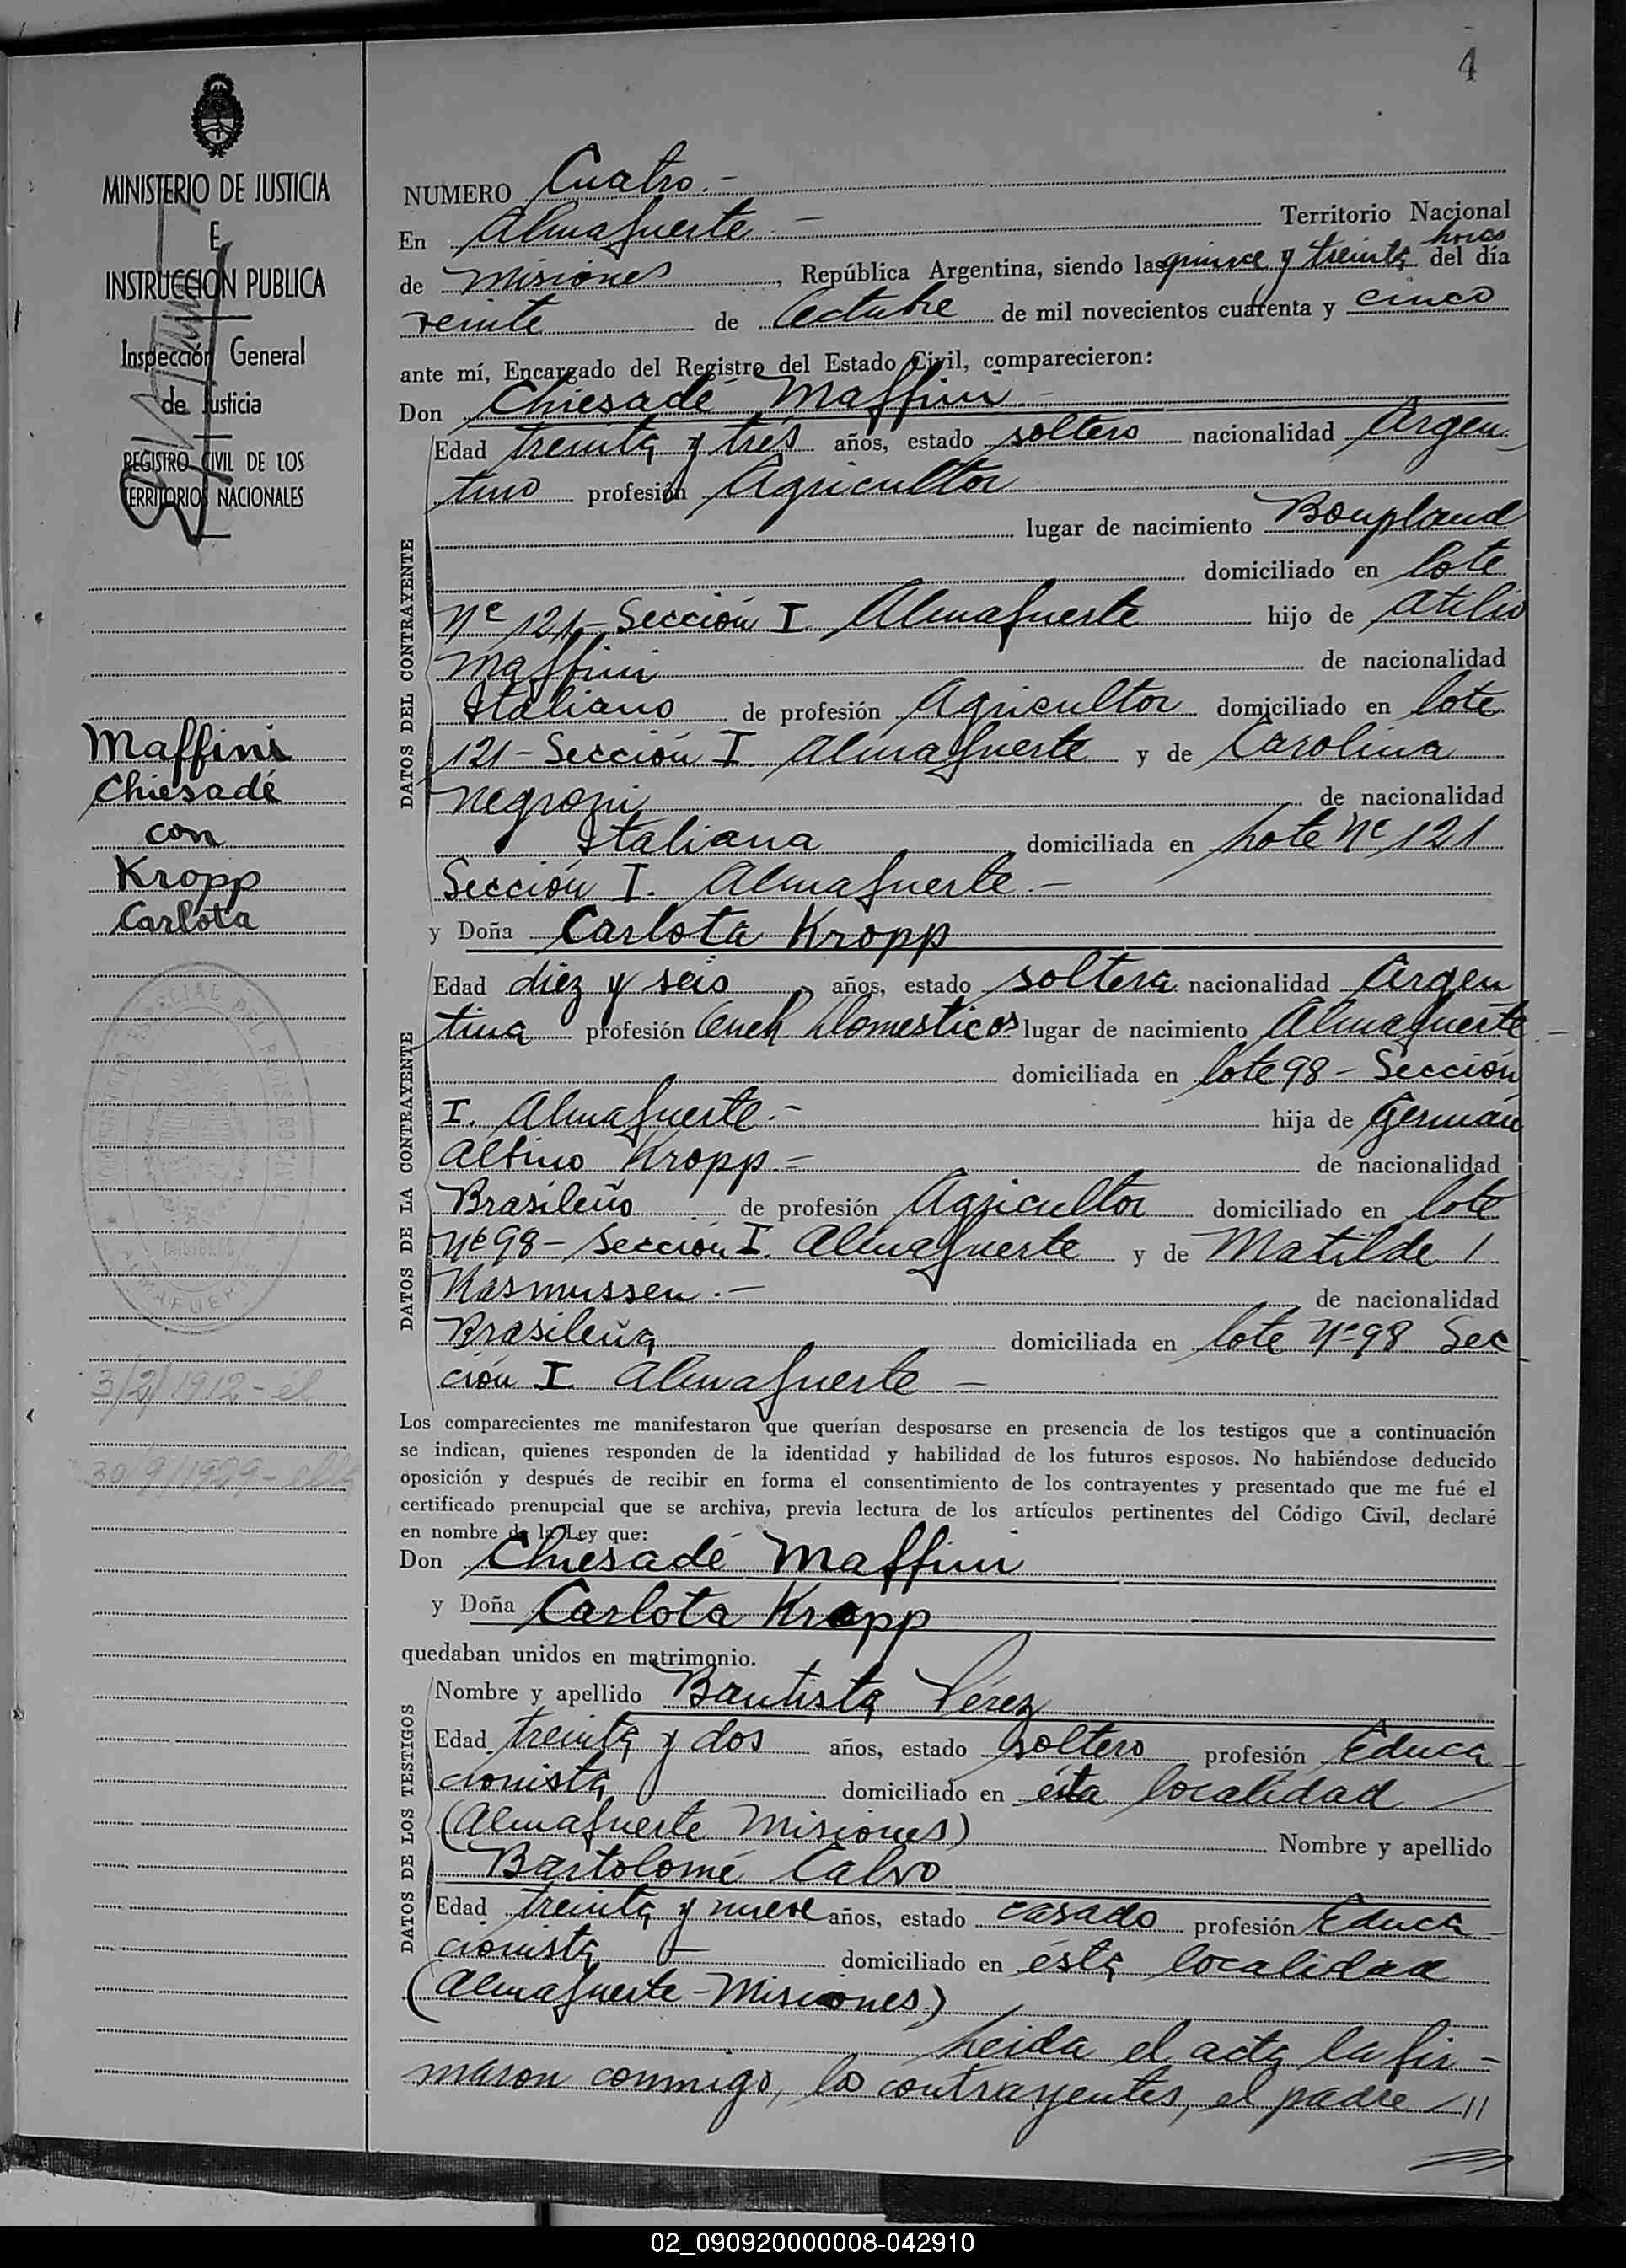 4
MINISTERIO DE JUSTICIA
E
INSTRUCCION PUBLICA
Inspección General
de Justicia
REGISTRO CIVIL DE LOS
TERRITORIOS NACIONALES
Maffini
Chiesadé
con
Kropp
Carlota
3/2/1912 - él
30/9/1929 - ella
NUMERO Cuatro.-
En Almafuerte - Territorio Nacional
de Misiones, República Argentina, siendo las quince y treinta horas del día
veinte de Octubre de mil novecientos cuarenta y cinco
ante mí, Encargado del Registro del Estado Civil, comparecieron:
Don Chiesadé Maffini -
DATOS DEL CONTRAYENTE
Edad treinta y tres años, estado soltero nacionalidad Argen-
tino profesión Agricultor
lugar de nacimiento Bonpland
domiciliado en lote
Nº 121 - Sección I Almafuerte hijo de Atilio
Maffini de nacionalidad
Italiano de profesión Agricultor domiciliado en lote
121 - Sección I. Almafuerte y de Carolina
Negroni de nacionalidad
Italiana domiciliada en Lote Nº 121
Sección I. Almafuerte.-
y Doña Carlota Kropp
DATOS DE LA CONTRAYENTE
Edad diez y seis años, estado soltera nacionalidad Argen
tina profesión Queh Domesticos lugar de nacimiento Almafuerte
domiciliada en lote 98 - Sección
I. Almafuerte.- hija de Germán
Albino Kropp.- de nacionalidad
Brasileño de profesión Agricultor domiciliado en lote
Nº 98 - Sección I. Almafuerte y de Matilde
Rasmussen.- de nacionalidad
Brasileña domiciliada en lote Nº 98 Sec
ción I. Almafuerte -
Los comparecientes me manifestaron que querían desposarse en presencia de los testigos que a continuación
se indican, quienes responden de la identidad y habilidad de los futuros esposos. No habiéndose deducido
oposición y después de recibir en forma el consentimiento de los contrayentes y presentado que me fué el
certificado prenupcial que se archiva, previa lectura de los artículos pertinentes del Código Civil, declaré
en nombre de la Ley que:
Don Chiesadé Maffini
y Doña Carlota Kropp
quedaban unidos en matrimonio.
DATOS DE LOS TESTIGOS
Nombre y apellido Bautista Pérez
Edad treinta y dos años, estado soltero profesión Educa-
cionista domiciliado en ésta localidad
(Almafuerte Misiones) Nombre y apellido
Bartolomé Calvo
Edad treinta y nueve años, estado casado profesión Educa-
cionista domiciliado en ésta localidad
(Almafuerte - Misiones)
Leida el acta la fir-
maron conmigo, los contrayentes, el padre //
02_090920000008-042910